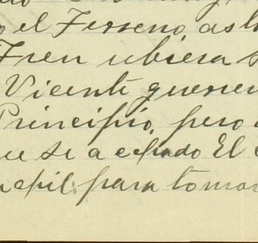 o el Terreno, as
Tren ubiera
Vicente queren
Principio, pero
ue se a echado El
para tomar